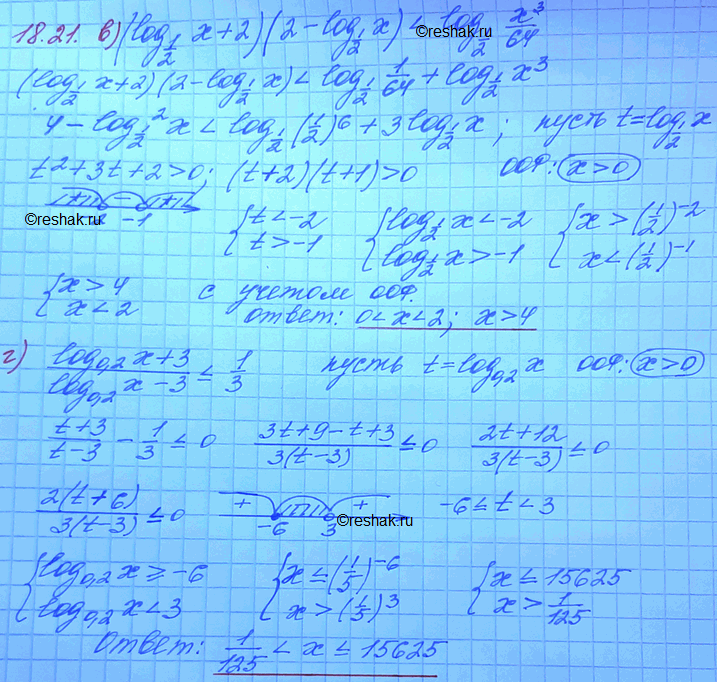 18.21. в) (log_{1/2} x+2)(2-log_{1/2} x) < log_{1/2} x³/64
(log_{1/2} x+2)(2-log_{1/2} x) < log_{1/2} 1/64 + log_{1/2} x³
4 - log_{1/2}² x < log_{1/2} (1/2)⁶ + 3 log_{1/2} x ; пусть t = log_{1/2} x
t² + 3t + 2 > 0 ; (t+2)(t+1) > 0 ООФ: x > 0
+ - +
©reshak.ru -1 { t < -2 t > -1 { log_{1/2} x < -2 log_{1/2} x > -1 { x > (1/2)⁻² x < (1/2)⁻¹
{ x > 4 x < 2 с учетом ООФ.
Ответ: 0 < x < 2 ; x > 4
г) (log_{0,2} x + 3)/(log_{0,2} x - 3) ≤ 1/3 пусть t = log_{0,2} x ООФ: x > 0
(t+3)/(t-3) - 1/3 ≤ 0 (3t+9-t+3)/(3(t-3)) ≤ 0 (2t+12)/(3(t-3)) ≤ 0
2(t+6)/(3(t-3)) ≤ 0 + + -6 3 ©reshak.ru -6 ≤ t < 3
{ log_{0,2} x ≥ -6 log_{0,2} x < 3 { x ≤ (1/5)⁻⁶ x > (1/5)³ { x ≤ 15625 x > 1/125
Ответ: 1/125 < x ≤ 15625